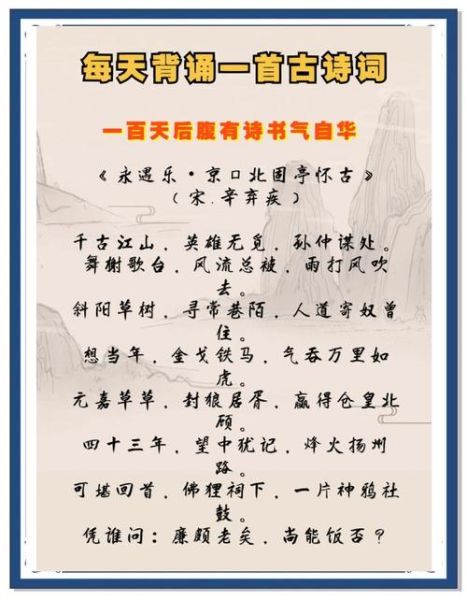 每天背诵一首古诗词
一百天后腹有诗书气自华
《永遇乐·京口北固亭怀古》
（宋.辛弃疾）
千古江山，英雄无觅，孙仲谋处。
舞榭歌台，风流总被，雨打风吹
去。
斜阳草树，寻常巷陌，人道寄奴曾
住。
想当年，金戈铁马，气吞万里如
虎。
元嘉草草，封狼居胥，赢得仓皇北
顾。
四十三年，望中犹记，烽火扬州
路。
可堪回首，佛狸祠下，一片神鸦社
鼓。
凭谁问：廉颇老矣，尚能饭否？